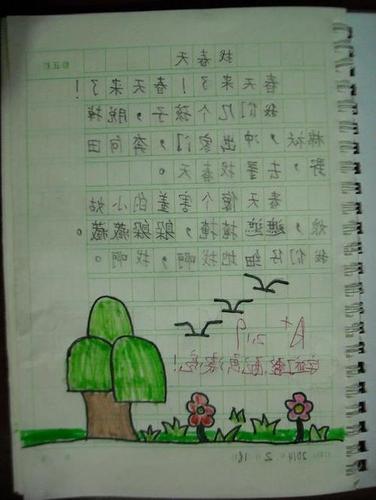 找春天
春天来了！春天来了！
我们几个孩子，脱掉
棉袄，冲出家门，奔向田
野，去寻找春天。
春天像个害羞的小姑
娘，遮遮掩掩，躲躲藏藏。
我们仔细地找啊，找啊。
A+
2.19
2014 2 18